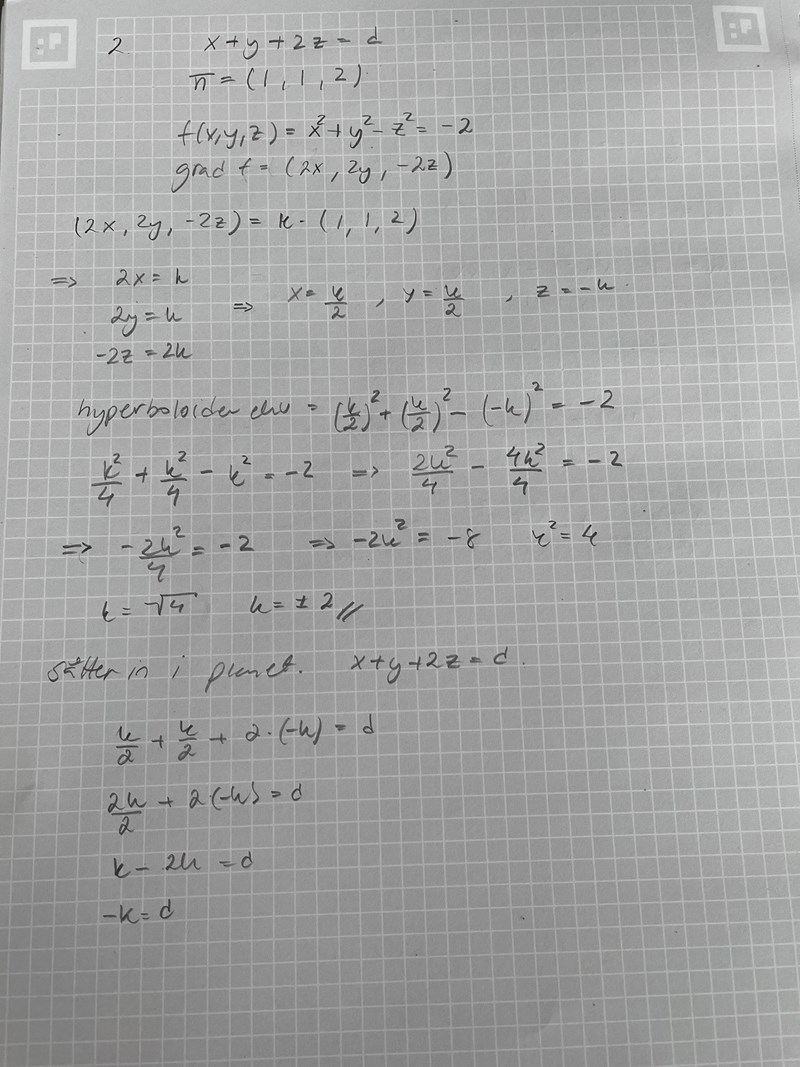 2. x+y+2z = d
n̄ = (1, 1, 2)
f(x,y,z) = x²+y²-z² = -2
grad f = (2x, 2y, -2z)
(2x, 2y, -2z) = k · (1, 1, 2)
=> 2x = k
2y = k => x = k/2 , y = k/2 , z = -k
-2z = 2k
hyperboloiden = (k/2)² + (k/2)² - (-k)² = -2
k²/4 + k²/4 - k² = -2 => 2k²/4 - 4k²/4 = -2
=> -2k²/4 = -2 => -2k² = -8 k² = 4
k = √4 k = ± 2 //
Sätter in i planet. x+y+2z = d.
k/2 + k/2 + 2·(-k) = d
2k/2 + 2(-k) = d
k - 2k = d
-k = d